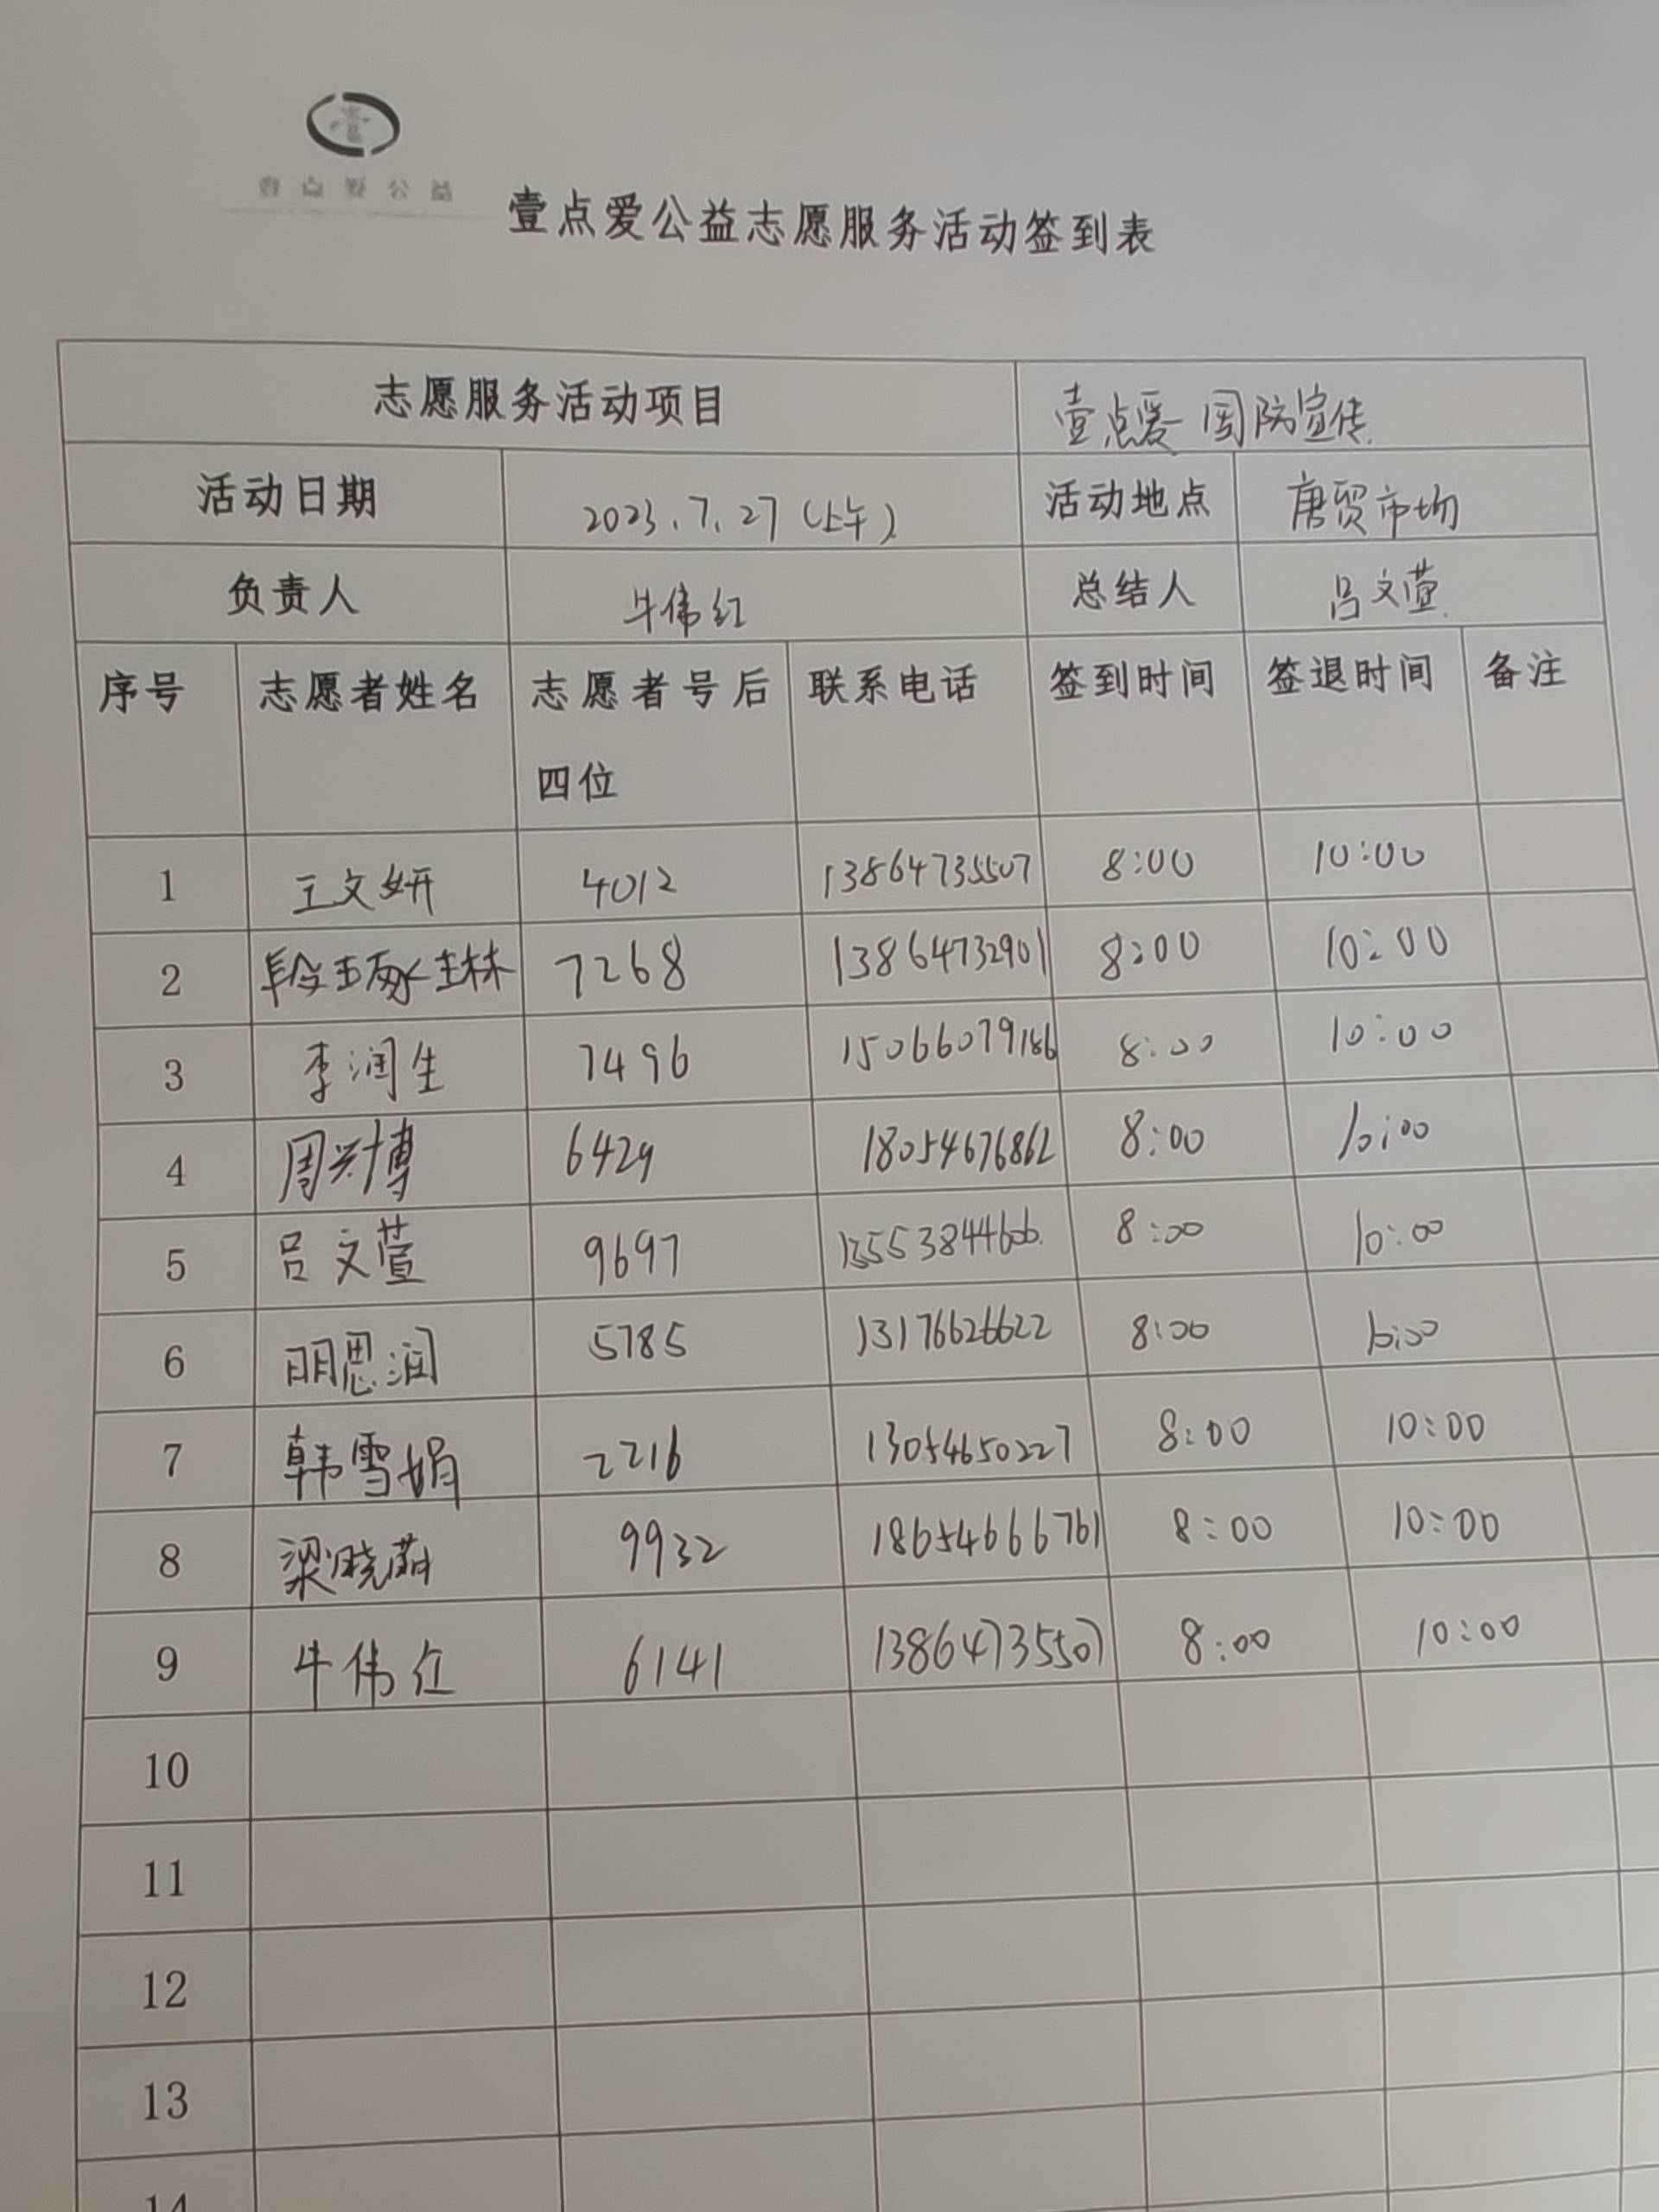 壹点爱公益
壹点爱公益志愿服务活动签到表
志愿服务活动项目 壹点爱 国防宣传
活动日期 2023.7.27(上午) 活动地点 唐贸市场
负责人 牛伟红 总结人 吕文萱
序号 志愿者姓名 志愿者号后 联系电话 签到时间 签退时间 备注
四位
1 王文妍 4012 13864735507 8:00 10:00
2 7268 13864732901 8:00 10:00
3 李润生 7496 15066079186 8:00 10:00
4 周兴博 6429 18054676862 8:00 10:00
5 吕文萱 9697 8:00 10:00
6 明思润 5785 13176626622 8:00 10:00
7 韩雪娟 2216 13054650227 8:00 10:00
8 梁晓蔚 9932 18654666761 8:00 10:00
9 牛伟红 6141 13864735507 8:00 10:00
10
11
12
13
14